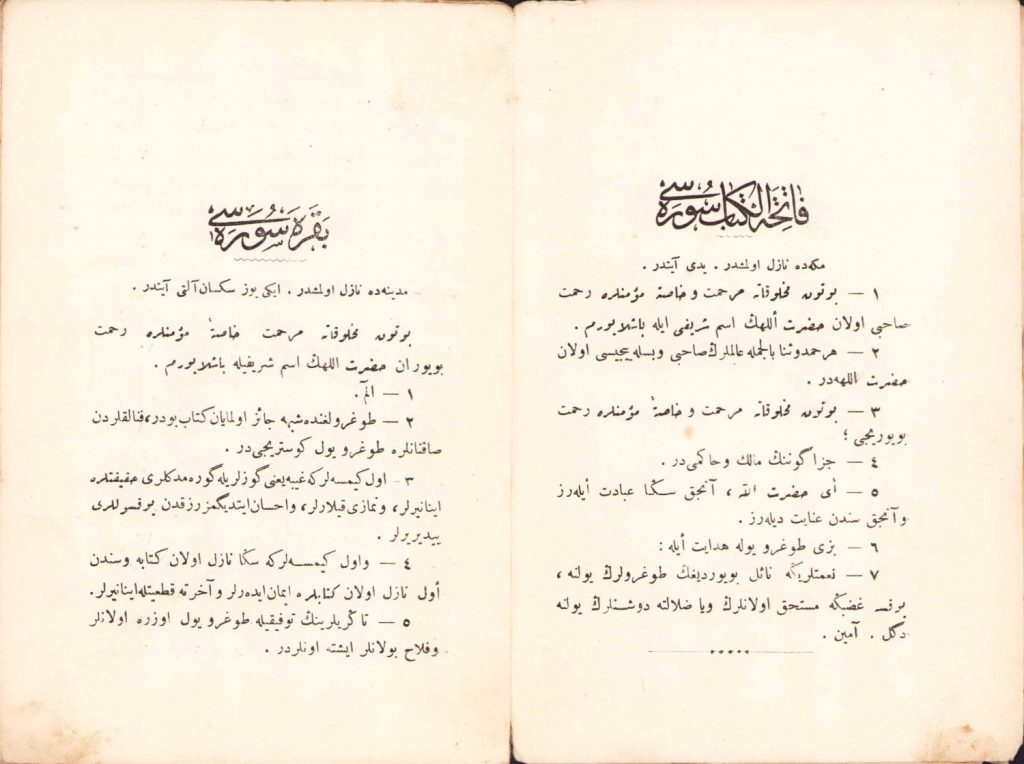 فاتحة الكتاب سورەسی
مكەدە نازل اولمشدر . یدی آیتدر .
١ — بوتون مخلوقاتە مرحمت و خاصة مؤمنلرە رحمت
صاحبی اولان حضرت أللهڭ اسم شریفی ایلە باشلایورم .
٢ — هر حمدوثنا بالجملە عالملرڭ صاحبی وبسلەییجیسی اولان
حضرت اللهەدر .
٣ — بوتون مخلوقاتە مرحمت و خاصةً مؤمنلرە رحمت
بویوریجی ؛
٤ — جزا گوننڭ مالك وحاكمی در .
٥ — أی حضرت الله ، آنجق سڭا عبادت أیلەرز
وآنجق سندن عنایت دیلەرز .
٦ — بزی طوغرو یولە هدایت أیلە :
٧ — نعمتلریڭە نائل بویوردیغڭ طوغرولرڭ یولنە ،
یوقسە غضبڭە مستحق اولانلرڭ ویا ضلالتە دوشنلرڭ یولنە
دكل . آمین .
بَقَرَە سُورَەسی
مدینەدە نازل اولمشدر . ایكی یوز سكسان آلتی آیتدر .
بوتون مخلوقاتە مرحمت خاصةً مؤمنلرە رحمت
بویوران حضرت اللهڭ اسم شریفیلە باشلایورم .
١ — الٓمٓ .
٢ — طوغرولغندە شبهە جائز اولمایان كتاب بودر، فنالقلردن
صاقنانلرە طوغرو یول كوستریجی در .
٣ — اول كیمسەلركە غیبە یعنی گوزلریلە گورەمدكلری حقیقتلرە
اینانیرلر، ونمازی قیلارلر، واحسان ایتدیگمز رزقدن یوقسوللری
ییدیریرلر .
٤ — واول كیمسەلركە سڭا نازل اولان كتابە وسندن
أول نازل اولان كتابلرە ایمان ایدەرلر و آخرتە قطعیتلە اینانیرلر.
٥ — تاڭریلرینڭ توفیقیلە طوغرو یول اوزرە اولانلر
وفلاح بولانلر ایشتە اونلردر .